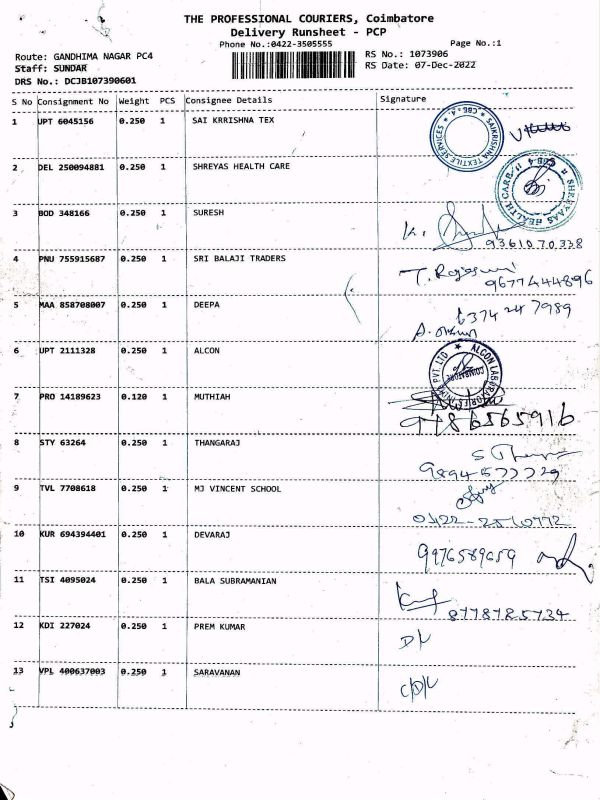 THE PROFESSIONAL COURIERS, Coimbatore
Delivery Runsheet - PCP
Phone No.:0422-3505555
Page No.:1
Route: GANDHIMA NAGAR PC4
RS No.: 1073906
Staff: SUNDAR
RS Date: 07-Dec-2022
DRS No.: DCJB107390601
S No Consignment No Weight PCS Consignee Details Signature
1 UPT 6045156 0.250 1 SAI KRRISHNA TEX
SAIKRISHNA TEXTILE SERVICES ★ CBE-4. ★
2 DEL 250094881 0.250 1 SHREYAS HEALTH CARE
SHREYAAS HEALTH CARE
3 BOD 348166 0.250 1 SURESH
9361070338
4 PNU 755915687 0.250 1 SRI BALAJI TRADERS
9677444896
5 MAA 858708007 0.250 1 DEEPA
6374 247989
6 UPT 2111328 0.250 1 ALCON
ALCON LABORATORIES PVT LTD ★
COIMBATORE
7 PRO 14189623 0.120 1 MUTHIAH
9786565916
8 STY 63264 0.250 1 THANGARAJ
9894577729
9 TVL 7708618 0.250 1 MJ VINCENT SCHOOL
10 KUR 694394401 0.250 1 DEVARAJ
9976589659
11 TSI 4095024 0.250 1 BALA SUBRAMANIAN
8778785734
12 KDI 227024 0.250 1 PREM KUMAR
D/L
13 VPL 400637003 0.250 1 SARAVANAN
C/D/L